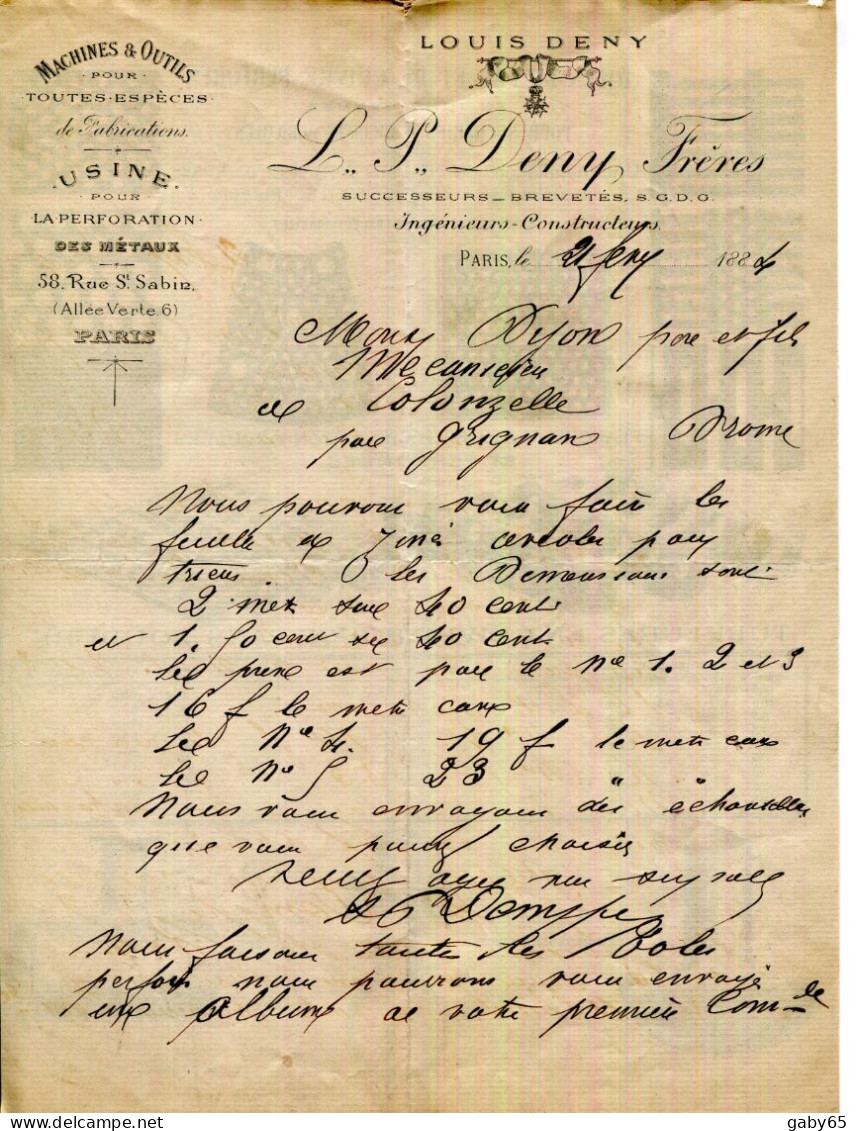 MACHINES & OUTILS
POUR
TOUTES ESPÈCES
de Fabrications.
USINE
POUR
LA PERFORATION
DES MÉTAUX
58, Rue St. Sabin,
(Allée Verte, 6)
PARIS
LOUIS DENY
L., P., Deny, Frères
SUCCESSEURS _ BREVETÉS, S.G.D.G.
Ingénieurs-Constructeurs.
PARIS, le 2 fevr 1884
Dijon pere et fils
Mecanicien
a Colonzelle
par Grignan Drome
Nous pouvons vous faire les
feuille de Zinc alveoler pour
trieur les Dimensions sont
2 met sur 40 cent
et 1. 50 cent sur 40 cent
les prix est pour le No 1. 2 et 3
16 f le metre carre
les No 4. 19 f le metre carre
les No 5 23 " "
Nous vous envoyons des échantillons
que vous pouvez choisir
Nous faisons toutes les Toles
perfor nous pourrons vous envoyé
un Album a votre première Com_de
gaby65